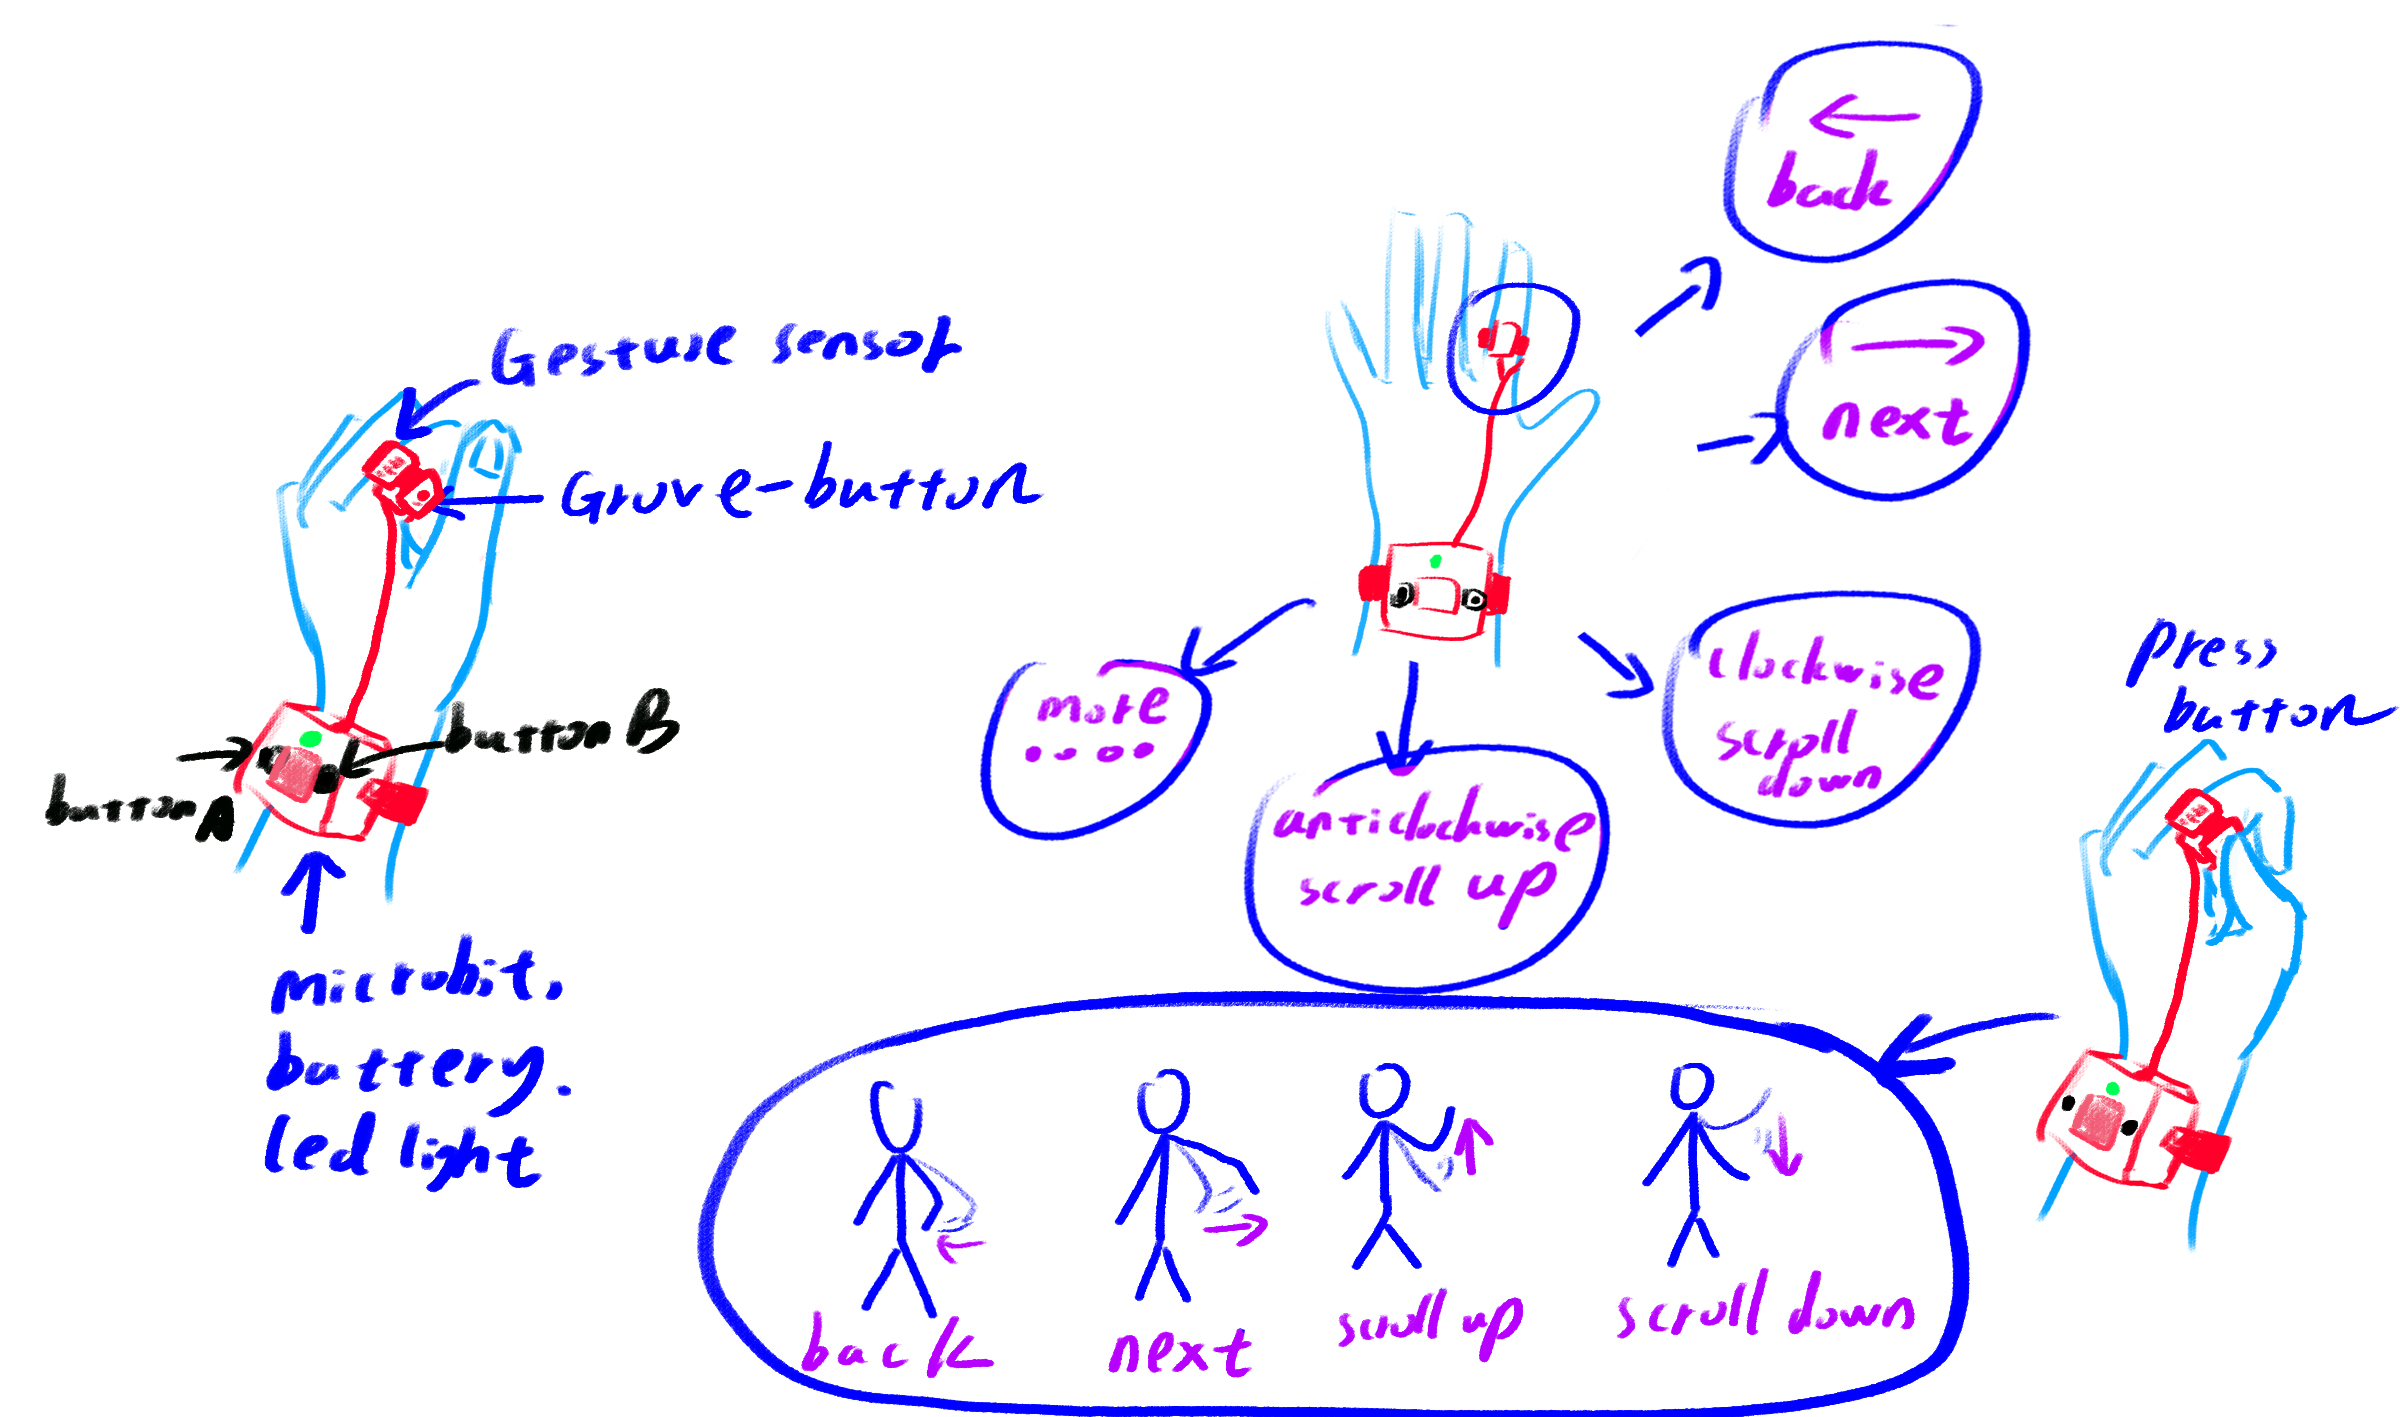 Gesture sensor
Grove-button
button B
button A
microbit,
battery.
led light
back
next
more
....
anticlockwise
scroll up
clockwise
scroll
down
press
button
back
next
scroll up
scroll down